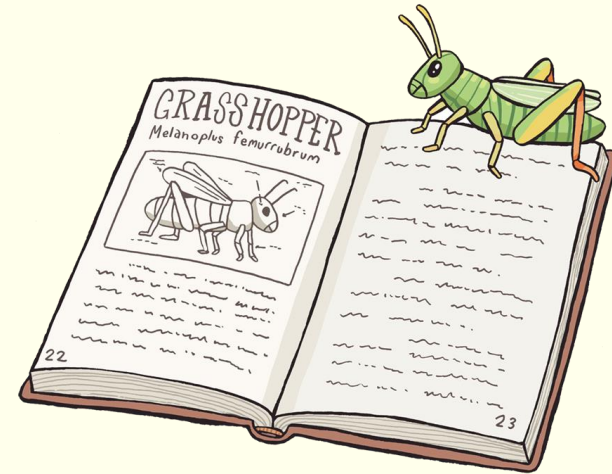 GRASSHOPPER
Melanoplus femurrubrum
22
23